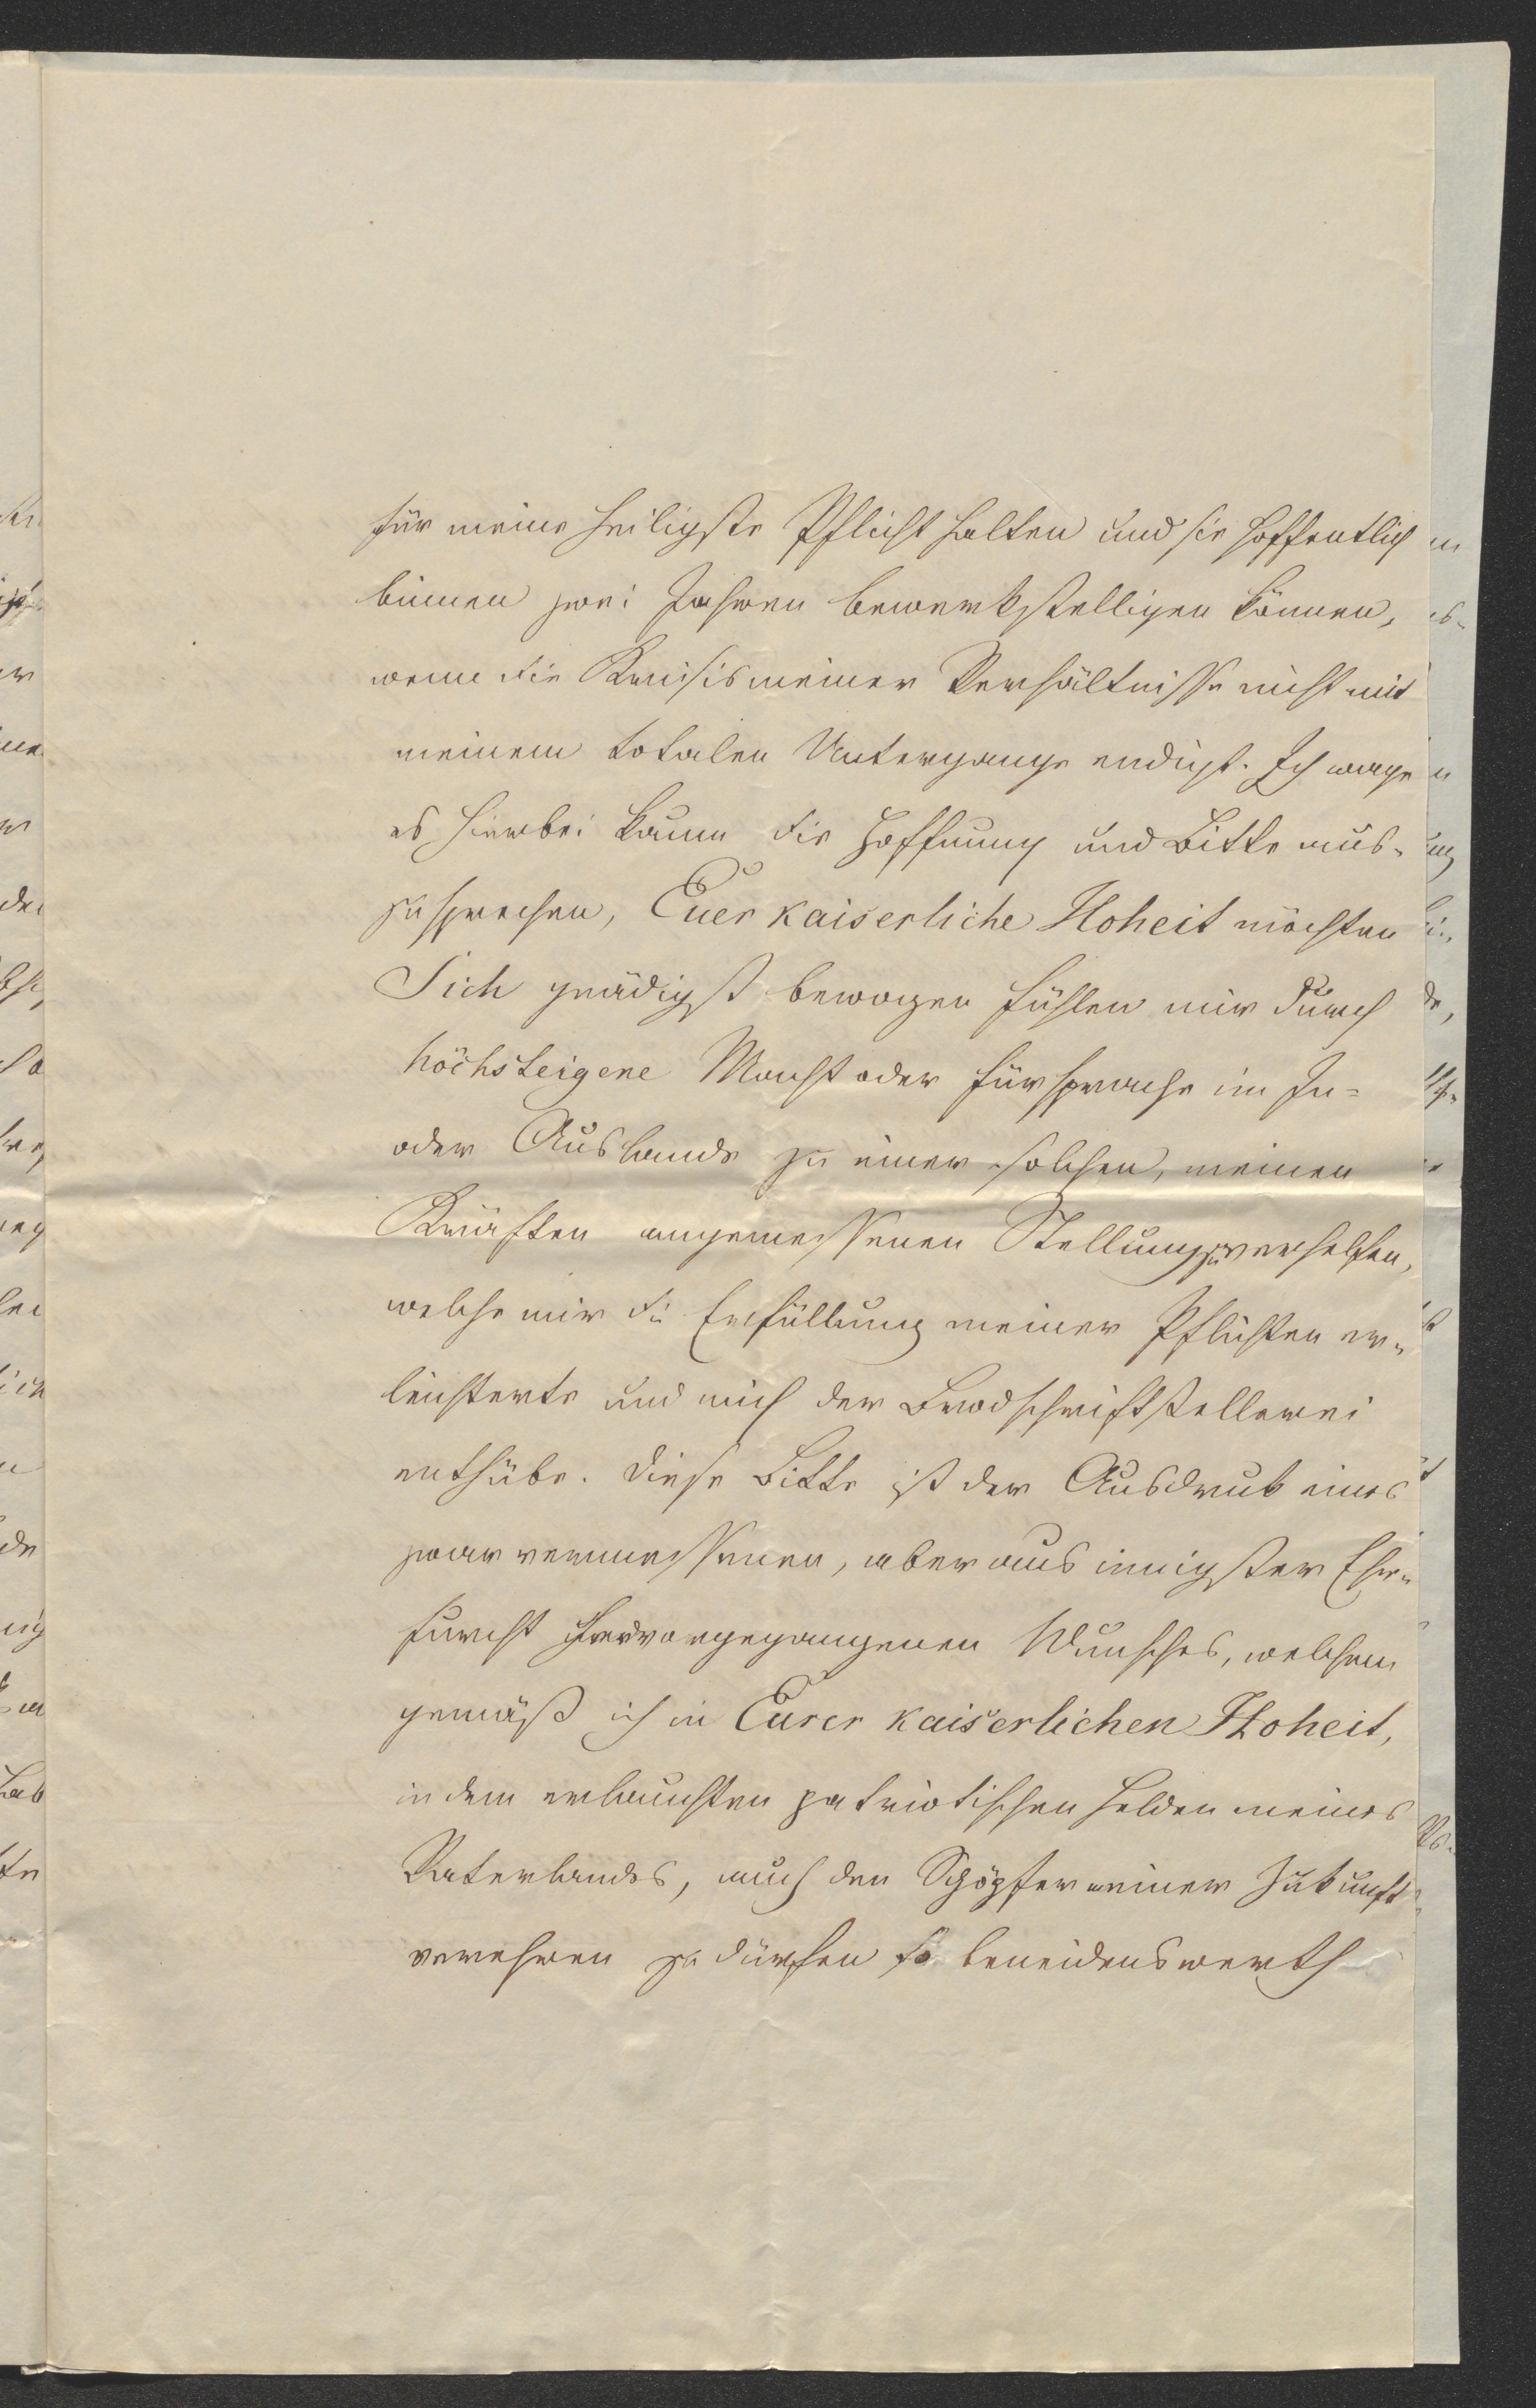 für meine heiligste Pflicht halten und sie hoffentlich
binnen zwei Jahren bewerkstelligen können,
wenn die Krisis meiner Verhältnisse nicht mit
meinem totalen Untergange endigt. Ich wage
es hierbei kaum die Hoffnung und Bitte aus-
zusprechen, Euer kaiserliche Hoheit möchten
Sich gnädigst bewogen fühlen mir durch
höchsteigene Macht oder Fürsprache im In-
oder Auslande zu einer solchen, meinen
Kräften angemessenen Stellung zu verhelfen,
welche mir die Erfüllung meiner Pflichten er-
leichterte und mich der Brodschriftstellerei
enthübe. Diese Bitte ist der Ausdruk eines
zwar vermessenen, aber aus innigster Ehr-
furcht hervorgegangenen Wunsches, welchem
gemäß ich in Eurer kaiserlichen Hoheit,
in dem erlauchten patriotischen Helden meines
Vaterlandes, auch den Schöpfer meiner Zukunft
verehren zu dürfen so beneidenswerth